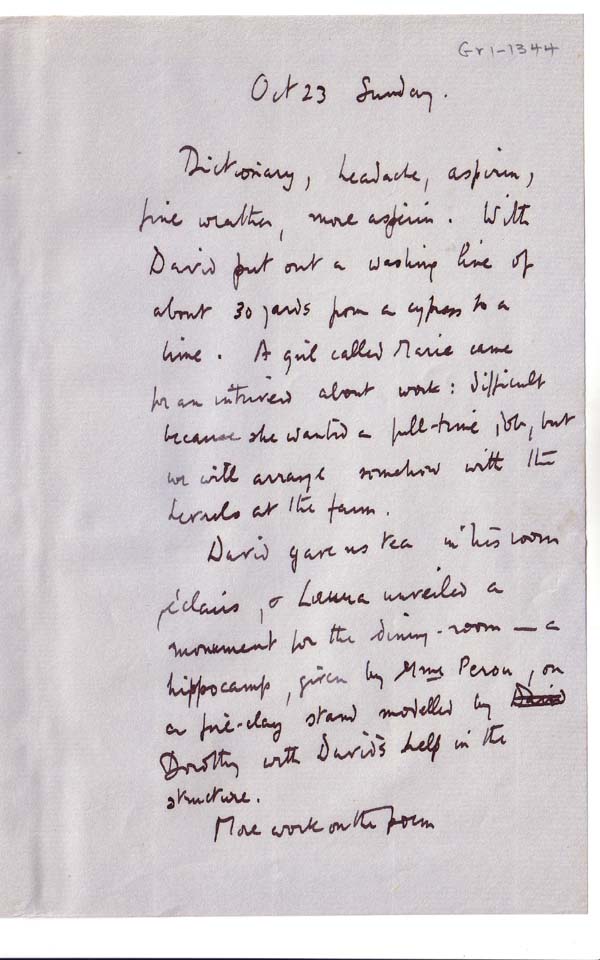 Gr1-1344
Oct 23 Sunday.
Dictionary, headache, aspirin,
fine weather, more aspirin. With
David put out a washing line of
about 30 yards from a cypress to a
lime. A girl called Marie came
for an interview about work: difficult
because she wanted a full-time job, but
we will arrange somehow with the
at the farm.
David gave us tea in his room
éclairs, & Laura unveiled a
monument for the dining-room — a
hippocamp, given by Mme Perou, on
a fire-clay stand modelled by David
Dorothy with David's help in the
structure.
More work on the poem